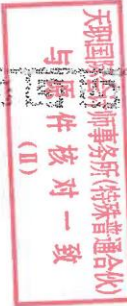 天职国际会计师事务所(特殊普通合伙)
与原件核对一致
(II)